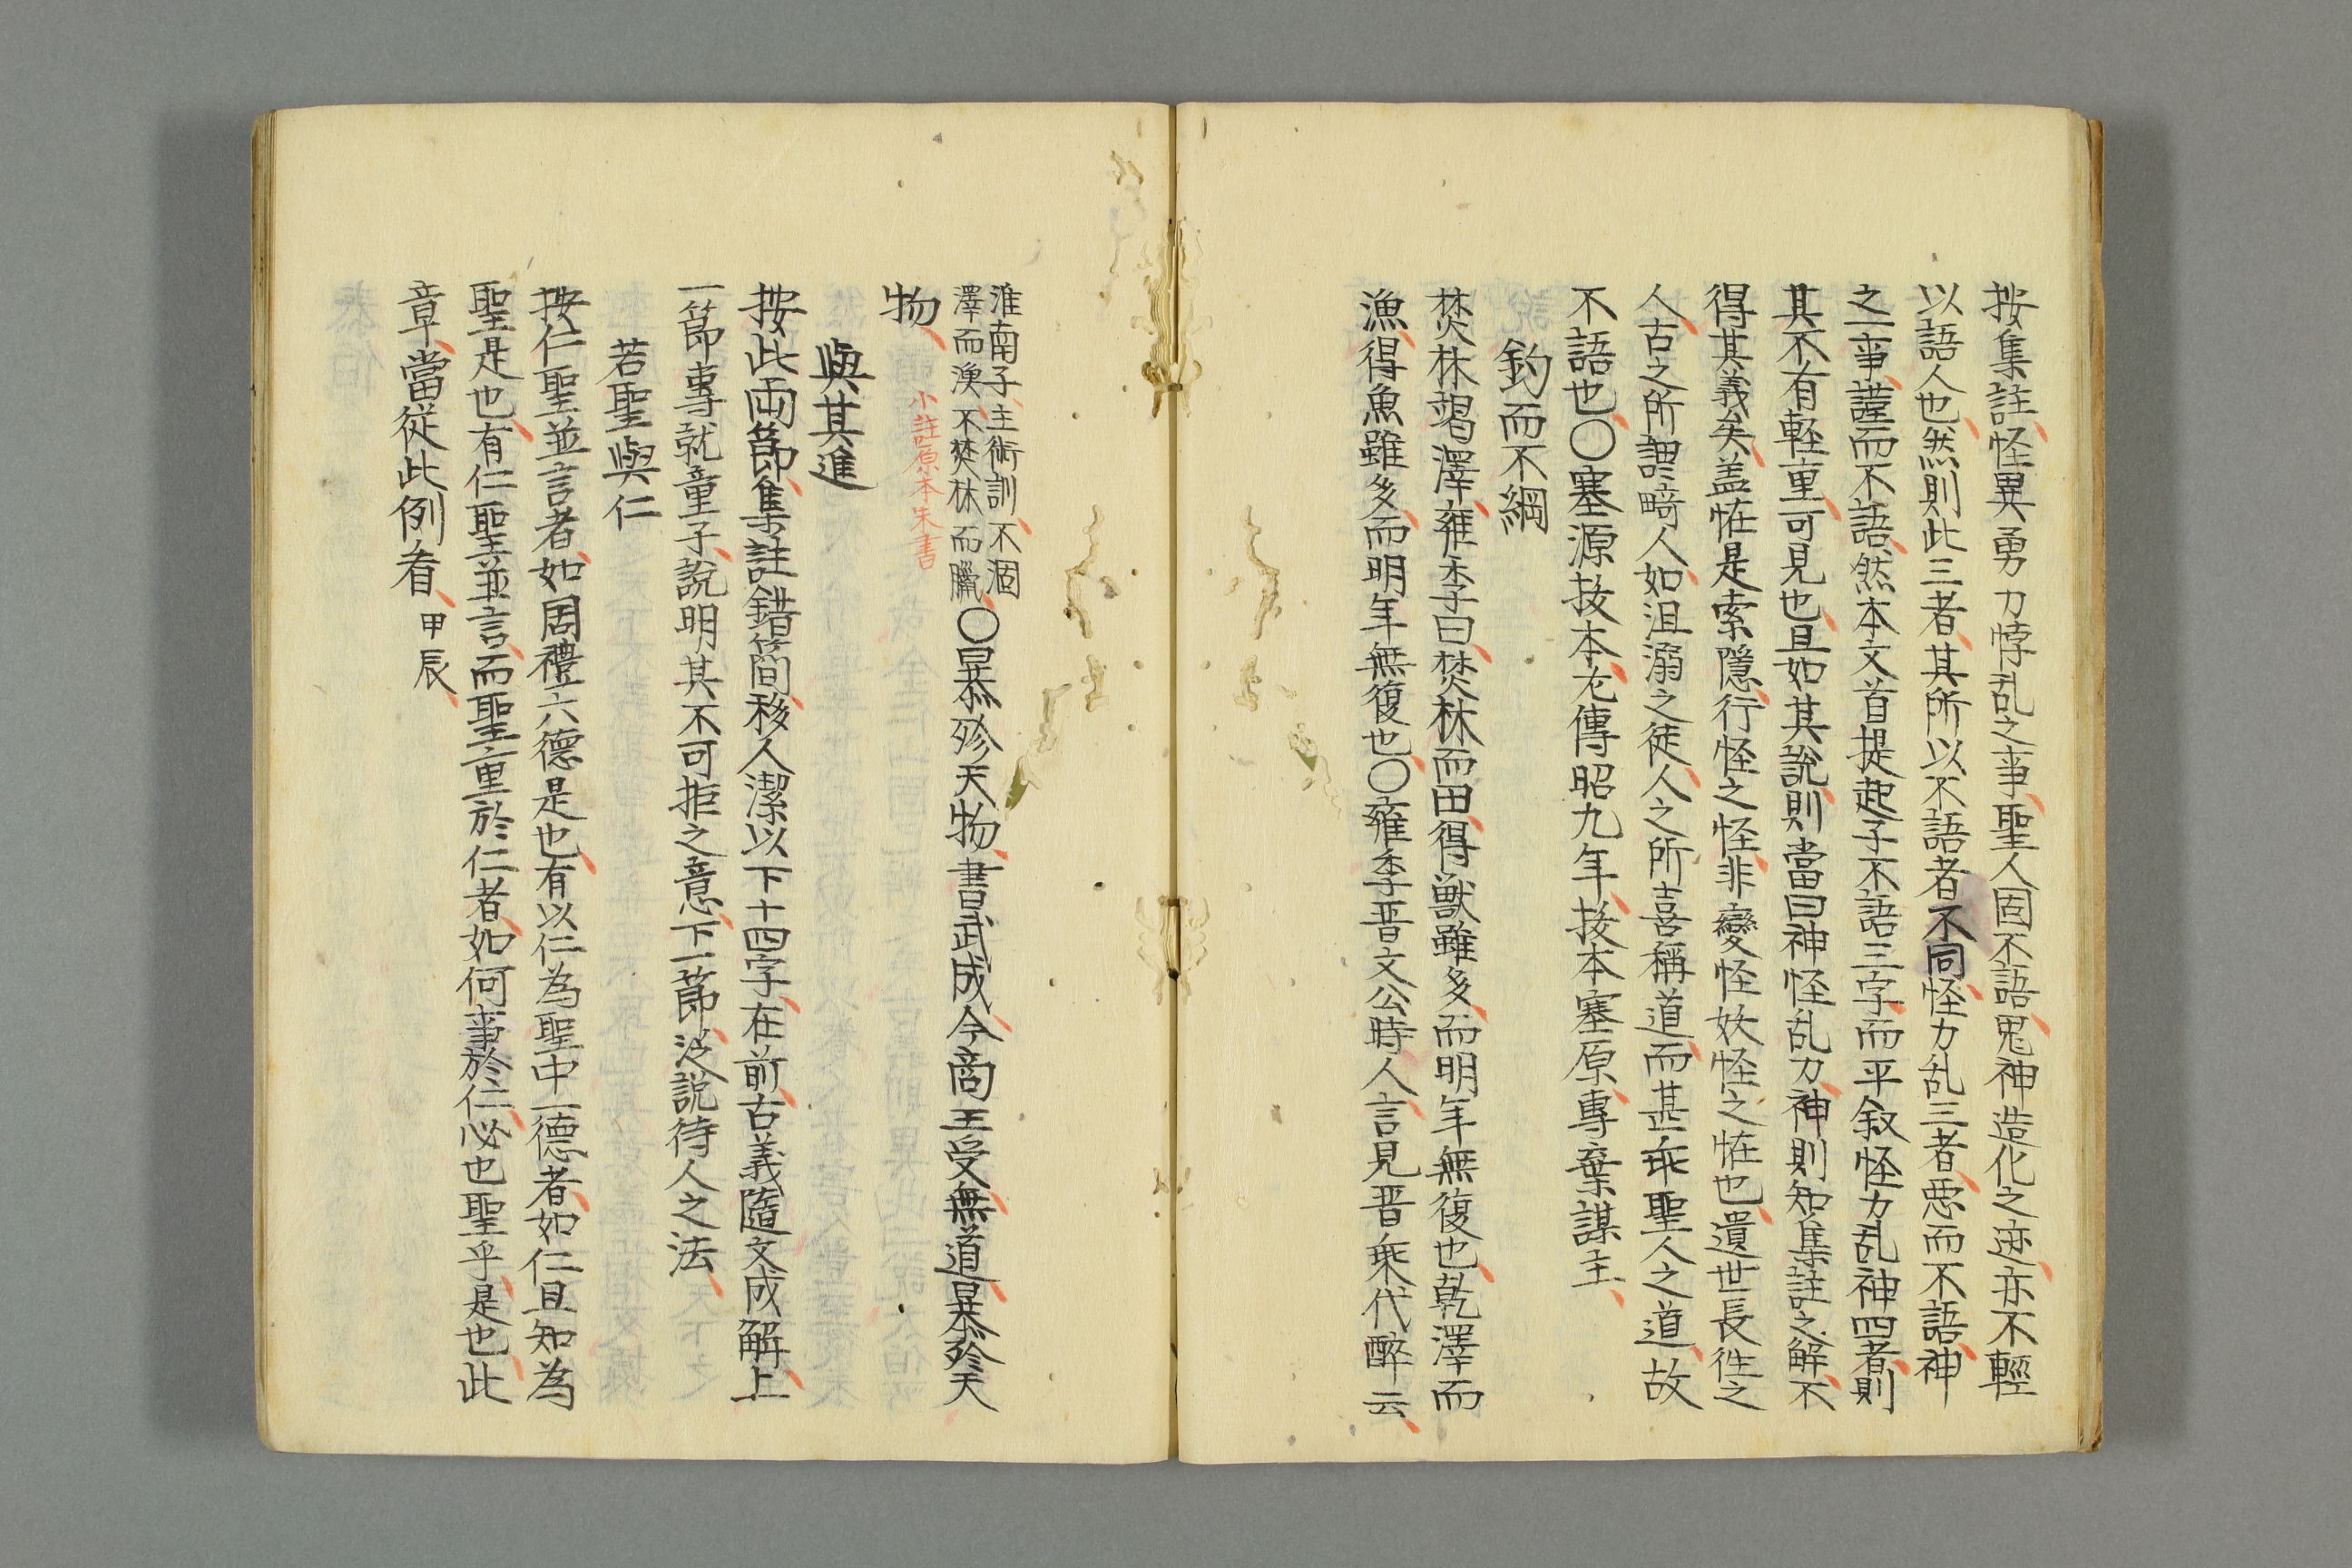 按集註怪異勇力悖乱之事聖人固不語鬼神造化之迹亦不輕
以語人也然則此三者其所以不語者不同怪力乱三者悪而不語神
之一事謹而不語然本文首提起子不語三字而平叙怪力乱神四者則
其不有輊重可見也且如其説則當曰神怪乱力神則知集註之解不
得其義矣盖恠是索隱行怪之怪非變怪妖怪之恠也遺世長徃之
人古之所謂畸人如沮溺之徒人之所喜稱道而甚乖聖人之道故
不語也〇塞源按本左傳昭九年按本塞原專棄謀主
釣而不綱
焚林竭澤雍季曰焚林而田得獣雖多而明年無復也乾澤而
漁得魚雖多而明年無復也〇雍季晋文公時人言見晋乗代醉云
淮南子主術訓不涸
澤而漁不焚林而臘
〇暴殄天物書武成今商王受無道暴殄天
物
小註原本朱書
與其進
按此両節集註錯簡移人潔以下十四字在前古義隨文成解上
一節專就童子説明其不可拒之意下一節泛説待人之法
若聖與仁
按仁聖並言者如周禮六德是也有以仁為聖中一德者如仁且知為
聖是也有仁聖並言而聖重於仁者如何事於仁必也聖乎是也此
章當從此例看 甲辰